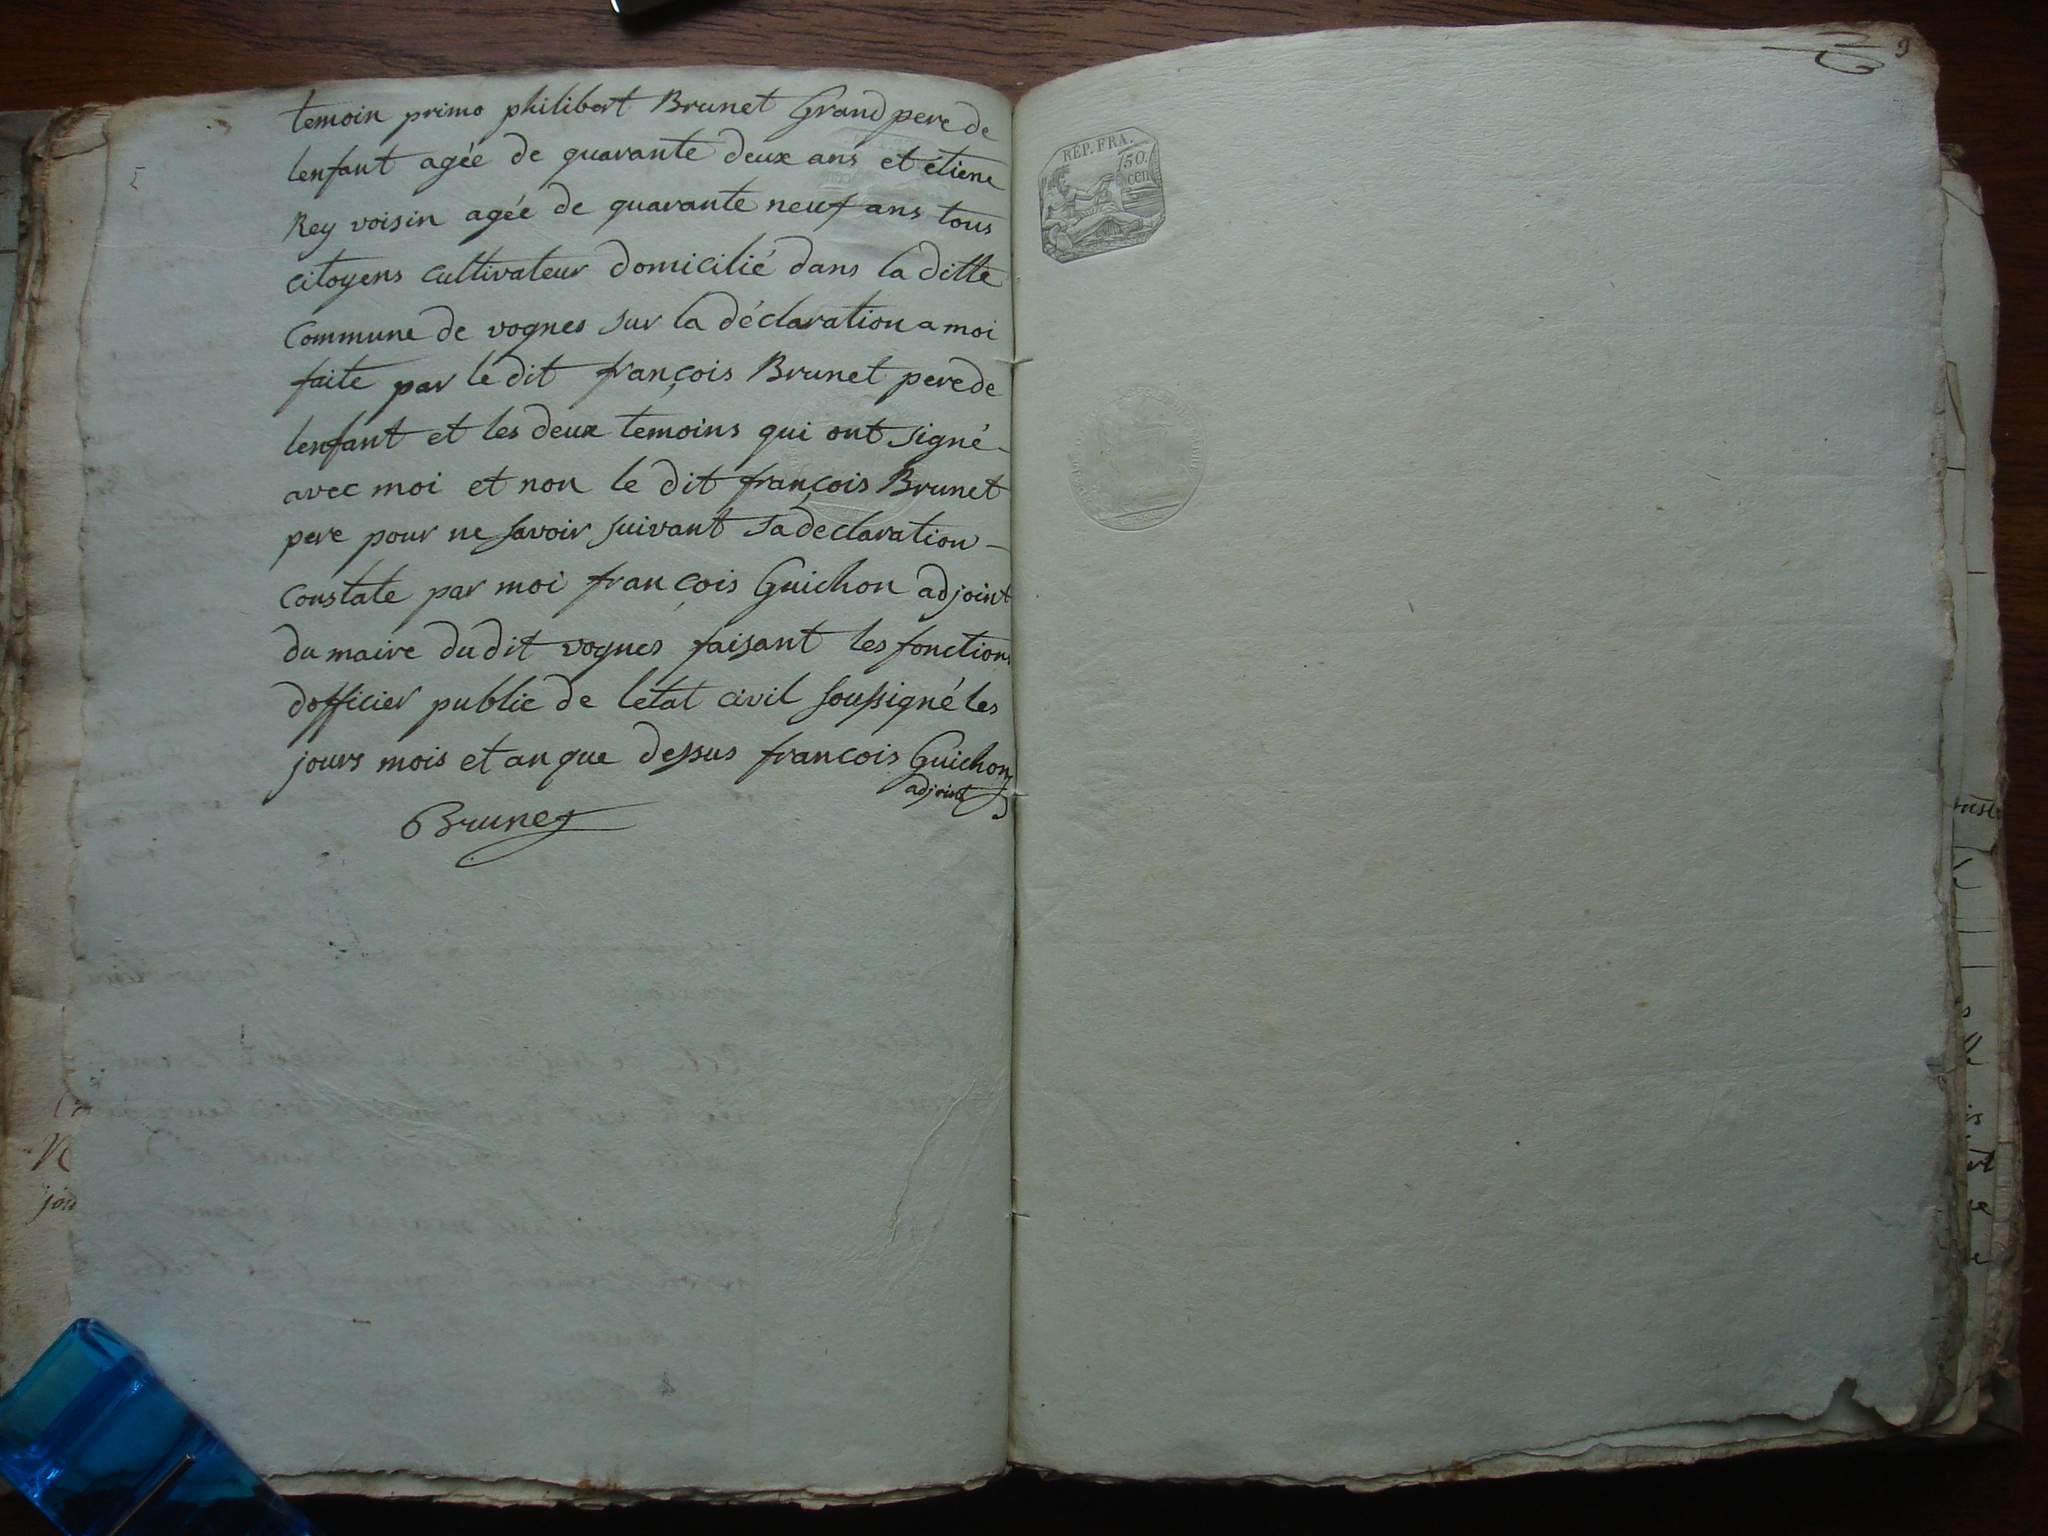 temoin primo philibert Brunet Grand pere de
lenfant agée de quarante deux ans et étiene
Rey voisin agée de quarante neuf ans tous
citoyens cultivateur domicilié dans la ditte
Commune de vognes sur la déclaration a moi
faite par le dit françois Brunet pere de
lenfant et les deux temoins qui ont signé
avec moi et non le dit françois Brunet
pere pour ne savoir suivant sa declaration
constate par moi françois Guichon adjoint
du maire du dit vognes faisant les fonctions
dofficier public de letat civil soussigné les
jours mois et an que dessus francois Guichon
adjoint
Brunet
9
REP. FRA.
50.
cen